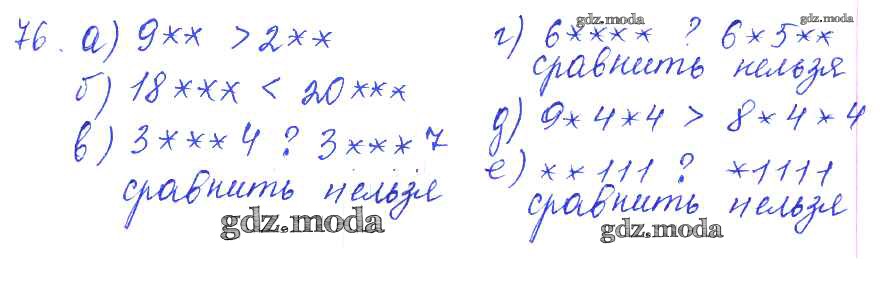 76. а) 9** > 2**
б) 18*** < 20***
в) 3***4 ? 3***7
сравнить нельзя
gdz.moda
gdz.moda
gdz.moda
г) 6**** ? 6*5**
сравнить нельзя
д) 9*4*4 > 8*4*4
е) **111 ? *1111
сравнить нельзя
gdz.moda